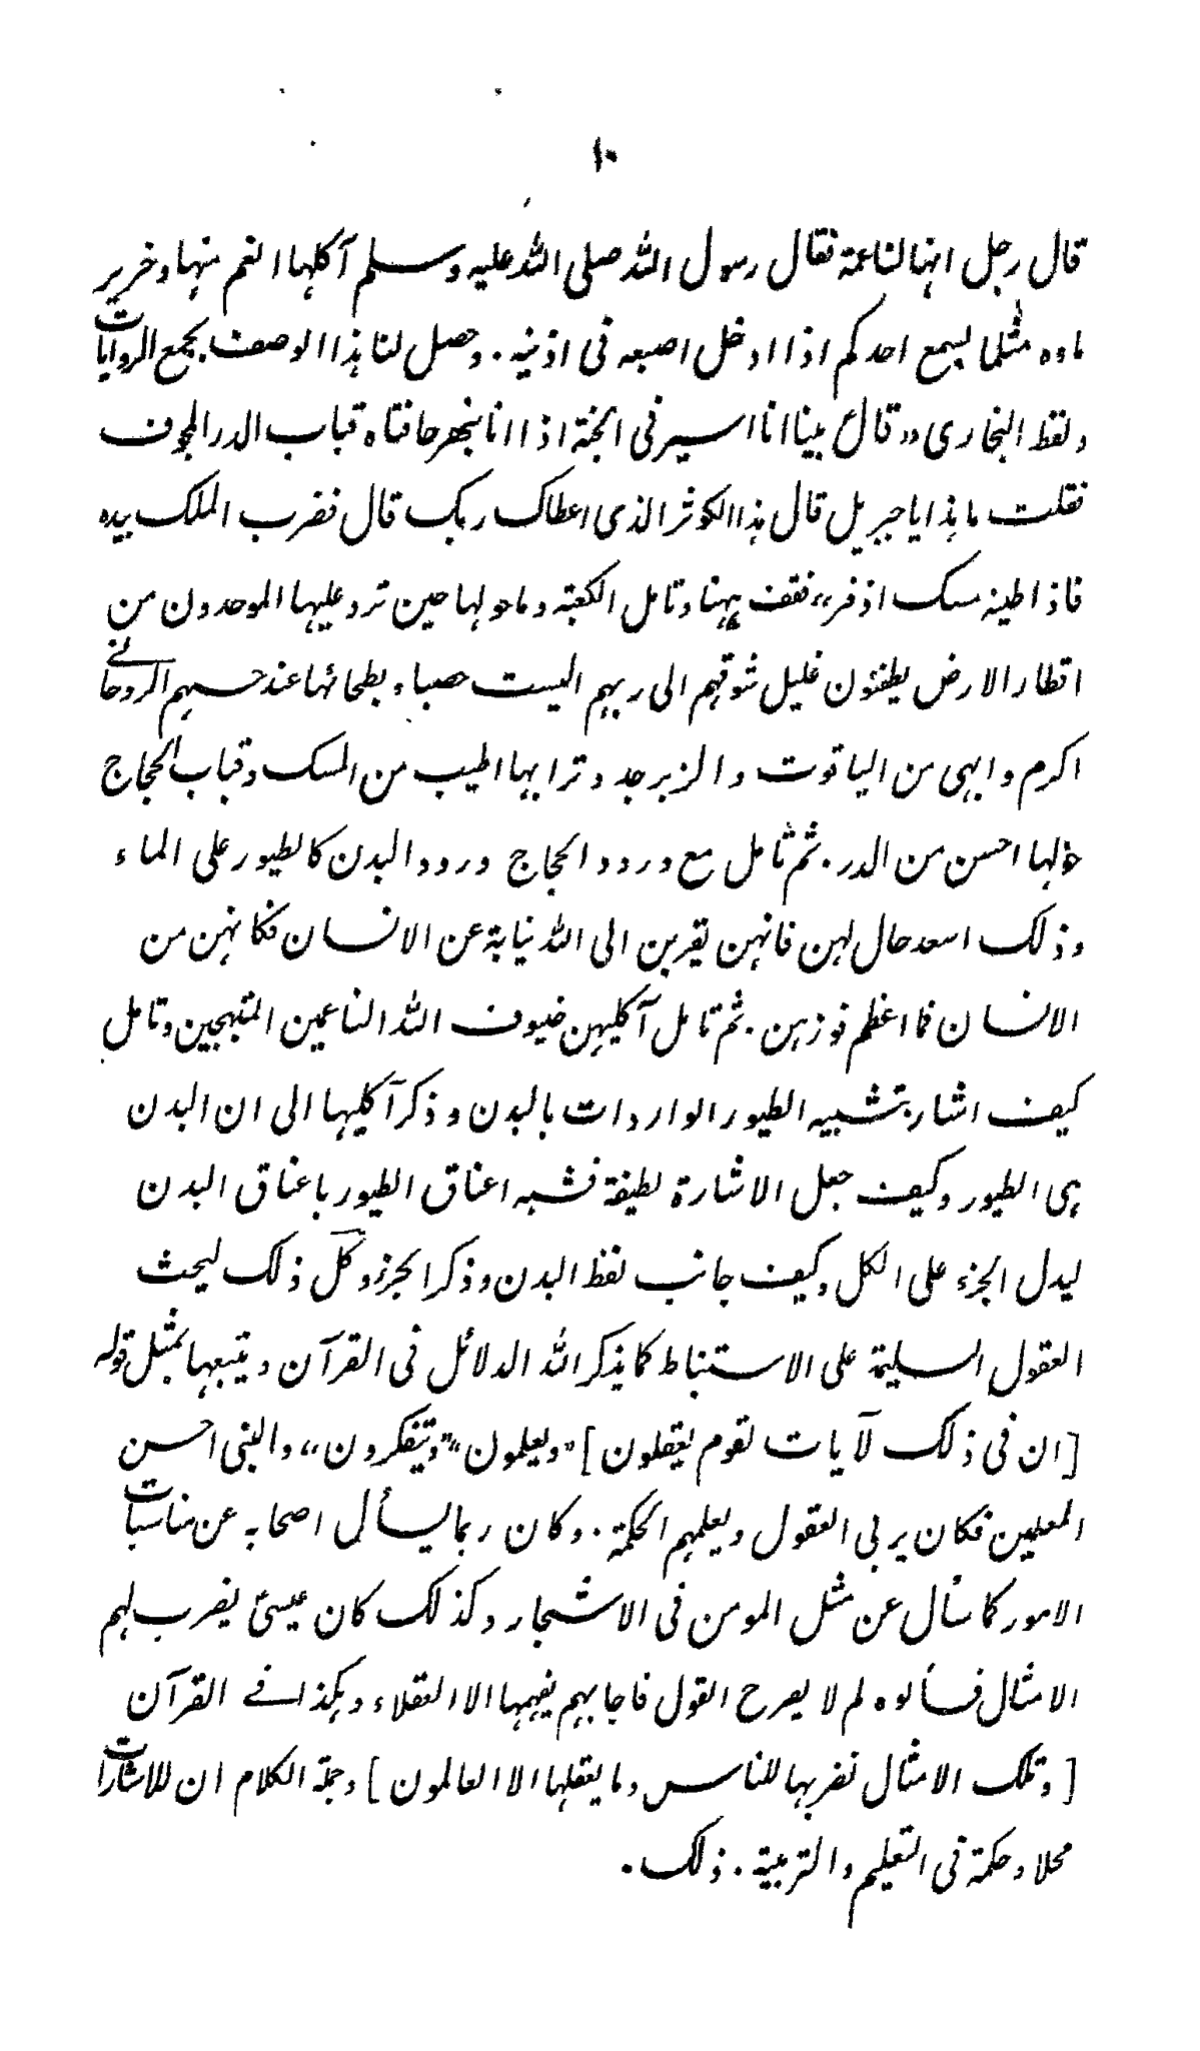 ١٠
قال رجل انها لناعمة فقال رسول الله صلى الله عليه وسلم آكلها انعم منها وخرير
ماءه مثلما يسمع احدكم اذا ادخل اصبعه فى اذنيه. وحصل لنا هذا الوصف بجمع الروايات
ولفظ البخارى "قال بينا انا اسير فى الجنة اذا انا بنهر حافتاه قباب الدر المجوف
فقلت ما هذا يا جبريل قال هذا الكوثر الذى اعطاك ربك قال فضرب الملك بيده
فاذا طينه مسك اذفر" فقف ههنا وتامل الكعبة وما حولها حين ترد عليها الموحدون من
اقطار الارض يطفئون غليل شوقهم الى ربهم اليست حصباء بطحائها عند حسهم الروحانے
اكرم وابهى من الياقوت والزبرجد وترابها اطيب من المسك وقباب الحجاج
حولها احسن من الدر. ثم تامل مع ورود الحجاج ورود البدن كالطيور على الماء
وذلك اسعد حال لهن فانهن يقربن الى الله نيابة عن الانسان فكانهن من
الانسان فما اعظم فوزهن. ثم تامل آكليهن ضيوف الله الناعمين المبتهجين وتامل
كيف اشار بتشبيه الطيور الواردات بالبدن وذكر آكليها الى ان البدن
هى الطيور وكيف جعل الاشارة لطيفة فشبه اعناق الطيور باعناق البدن
ليدل الجزء على الكل وكيف جانب لفظ البدن وذكر الجزر وكل ذلك ليحث
العقول السليمة على الاستنباط كما يذكر الله الدلائل فى القرآن ويتبعها بمثل قوله
[ان فى ذلك لآيات لقوم يعقلون] "ويعلمون" "ويتفكرون" والنبى احسن
المعلمين فكان يربى العقول ويعلمهم الحكمة. وكان ربما يسأل اصحابه عن مناسبات
الامور كما سأل عن مثل المومن فى الاشجار وكذلك كان عيسىٰ يضرب لهم
الامثال فسألوه لم لا يصرح القول فاجابهم يفهمها الا العقلاء وهكذا فے القرآن
[وتلك الامثال نضربها للناس وما يعقلها الا العالمون] وجملة الكلام ان للاشارات
محلا وحكمة فى التعليم والتربية. ذلك.